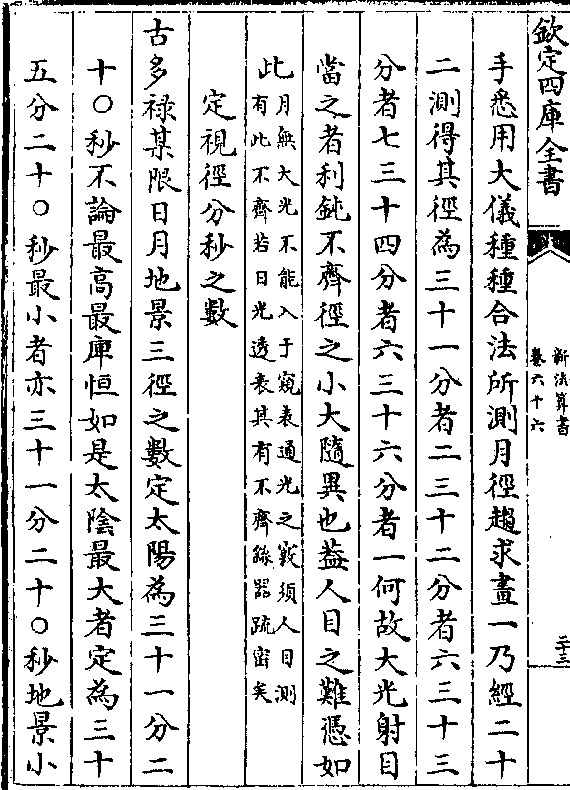 欽定四庫全書
新法算書
卷六十六
二十三
手悉用大儀種種合法所測月徑趨求畫一乃經二十
二測得其徑為三十一分者二三十二分者六三十三
分者七三十四分者六三十六分者一何故大光射目
當之者利鈍不齊徑之小大隨異也葢人目之難憑如
此月無大光不能入于窺表通光之竅須人目測
有此不齊若日光透表其有不齊繇器疏宻矣
定視徑分秒之數
古多祿某限日月地景三徑之數定太陽為三十一分二
十〇秒不論最高最庳恒如是太陰最大者定為三十
五分二十〇秒最小者亦三十一分二十〇秒地景小